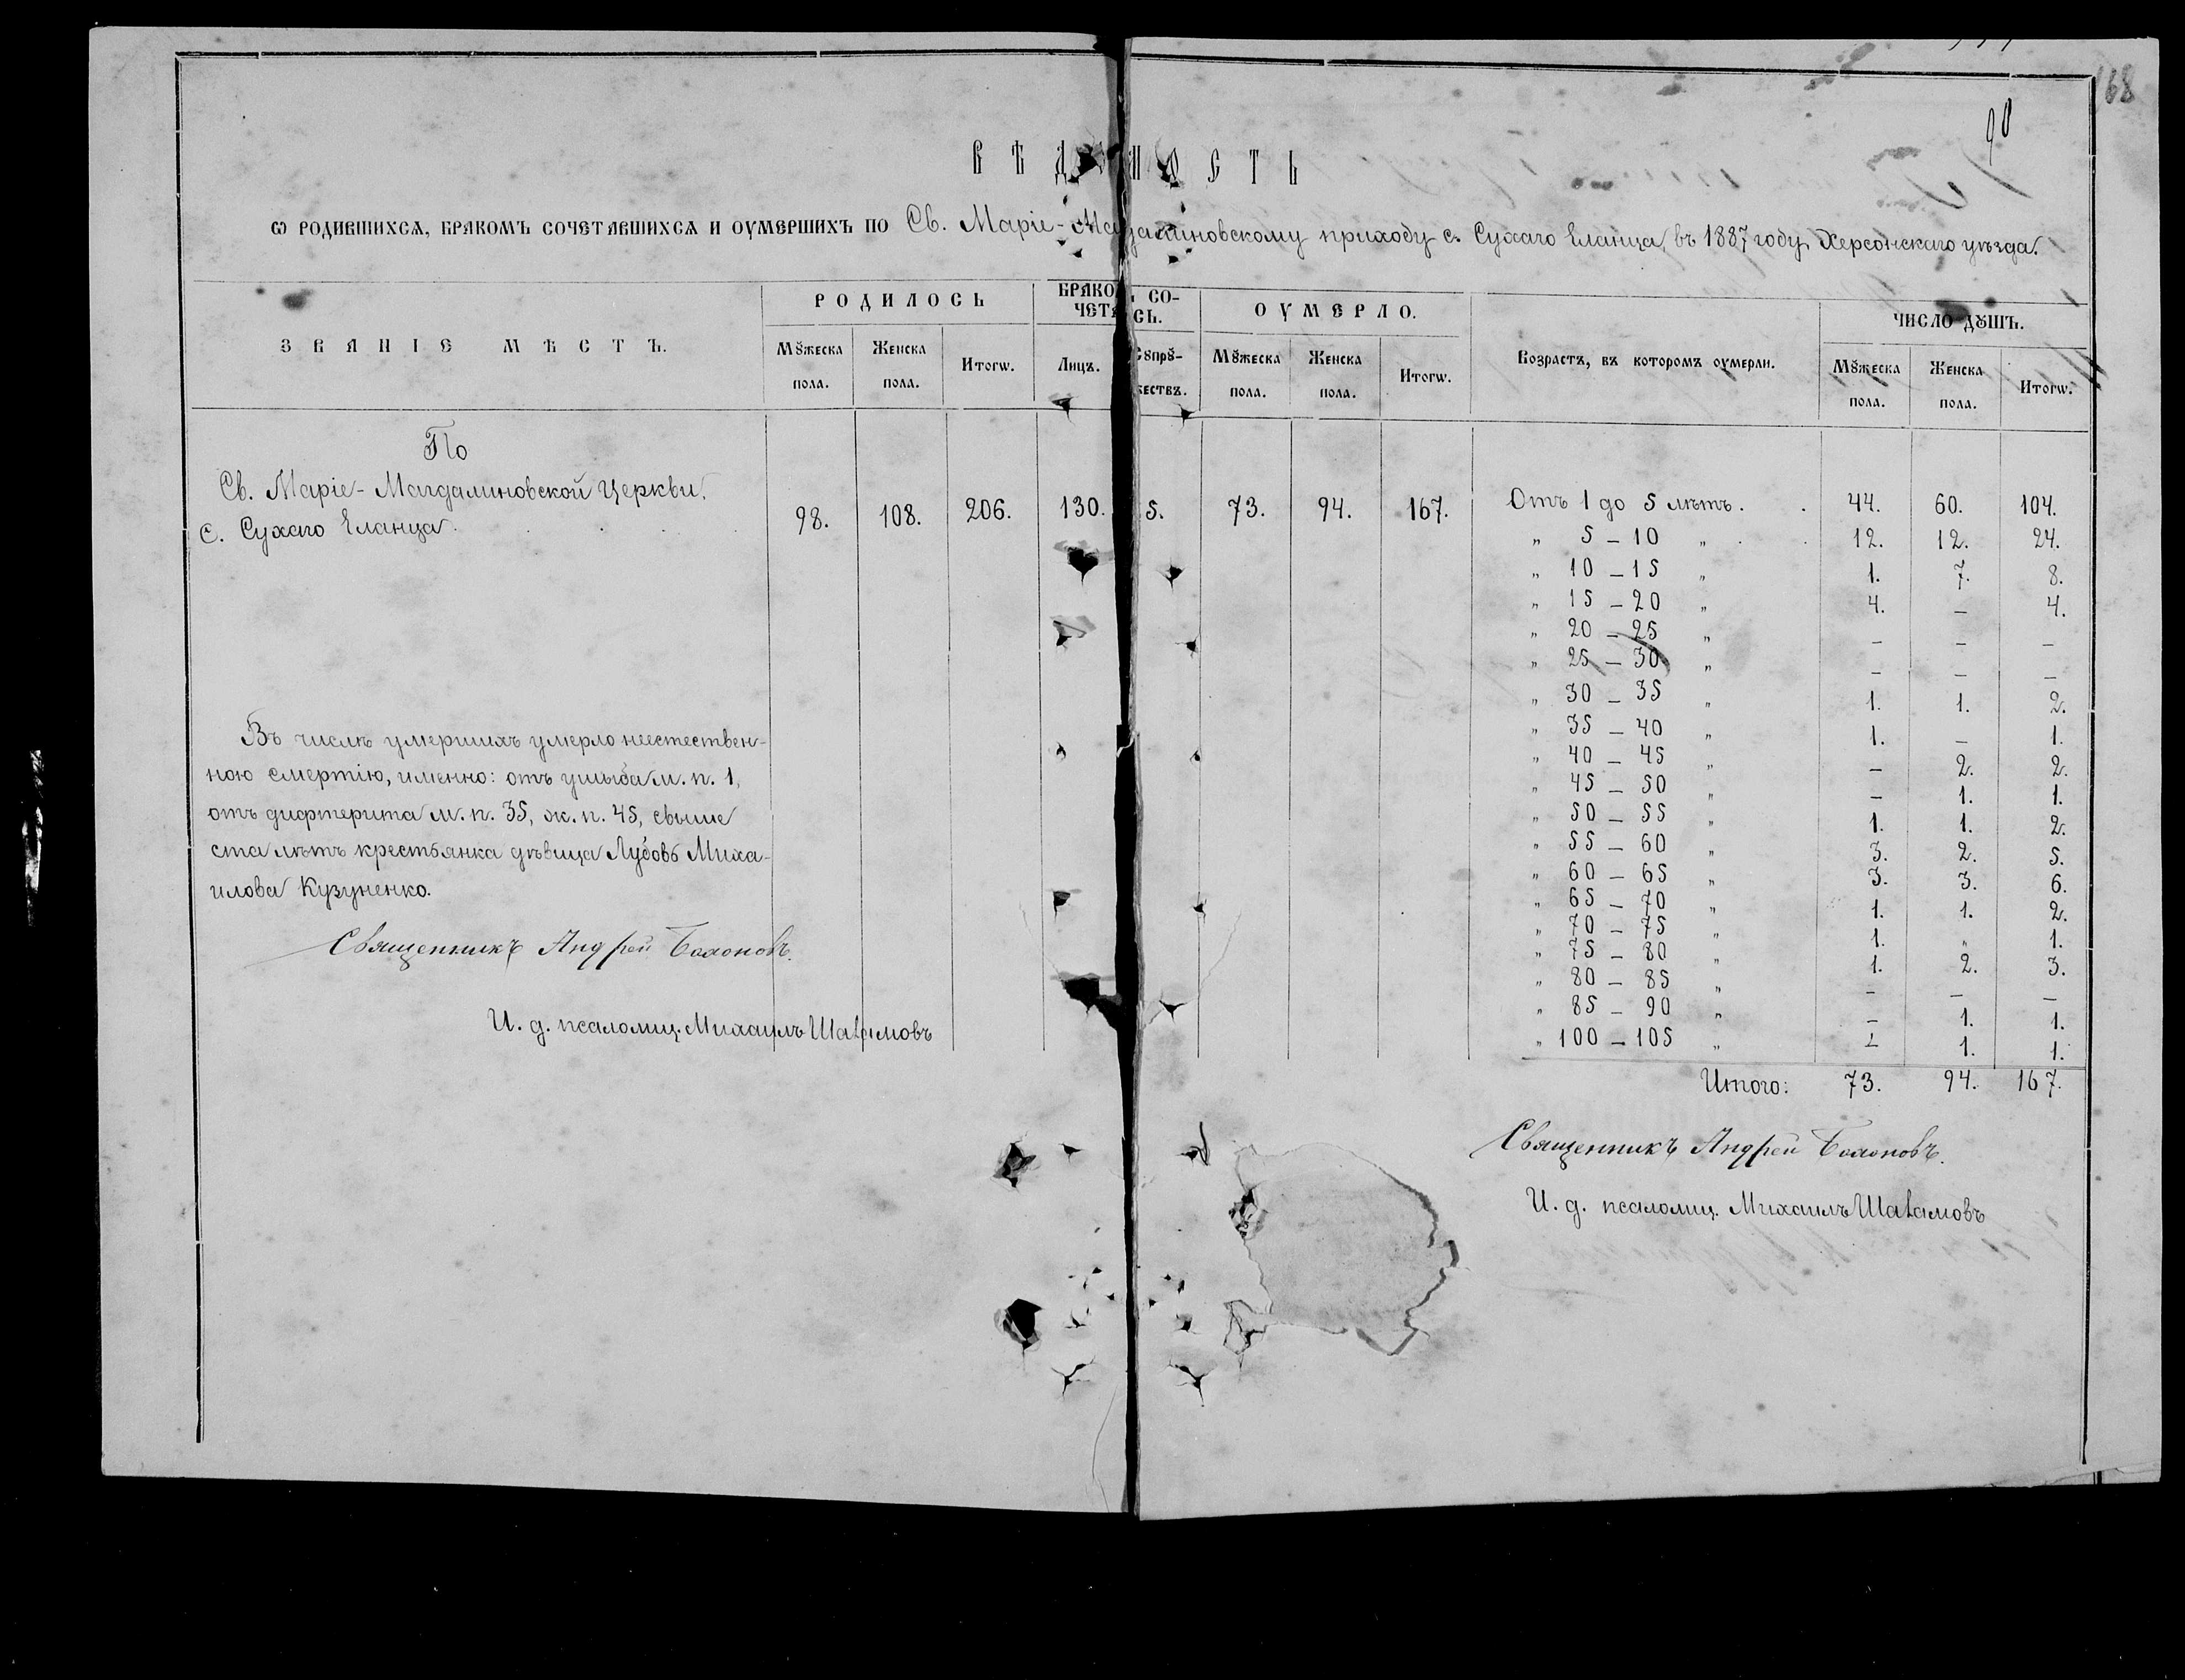 168
90
ВѢДОМОСТЬ
ѡ родившихсѧ, бракомъ сочетавшихсѧ и оумершихъ по Св. Маріе-Магдалиновскому приходу с. Сухаго Еланца, въ 1887 году, Херсонскаго уѣзда.
ЗВАНІЕ МѢСТЪ. РОДИЛОСЬ БРАКО СО- ОУМЕРЛО. Возрастъ, въ которомъ оумерли. ЧИСЛО ДꙊШЪ.
ЧЕТА СЬ.
Мꙋжеска пола. Женска пола. Итогѡ. Лицъ. Сꙋпрꙋ- жествъ. Мꙋжеска пола. Женска пола. Итогѡ. Мꙋжеска пола. Женска пола. Итогѡ.
По
Св. Маріе-Магдалиновской Церкви.
с. Сухаго Еланца. 98. 108. 206. 130. 5. 73. 94. 167.
Отъ 1 до 5 лѣтъ. . 44. 60. 104.
„ 5 – 10 „ . . 12. 12. 24.
„ 10 – 15 „ 1. 7. 8.
„ 15 – 20 „ 4. – 4.
„ 20 – 25 „ – – –
„ 25 – 30 „ – – –
„ 30 – 35 „ 1. 1. 2.
„ 35 – 40 „ 1. – 1.
„ 40 – 45 „ – 2. 2.
„ 45 – 50 „ – 1. 1.
„ 50 – 55 „ 1. 1. 2.
„ 55 – 60 „ 3. 2. 5.
„ 60 – 65 „ 3. 3. 6.
„ 65 – 70 „ 1. 1. 2.
„ 70 – 75 „ 1. „ 1.
„ 75 – 80 „ 1. 2. 3.
„ 80 – 85 „ – – –
„ 85 – 90 „ – 1. 1.
„ 100 – 105 „ – 1. 1.
Итого: 73. 94. 167.
Въ числѣ умершихъ умерло неестествен-
ною смертію, именно: отъ ушыба м. п. 1,
отъ дифтерита м. п. 35, ж. п. 45, свыше
ста лѣтъ крестьянка дѣвица Лубовь Миха-
илова Кузуненко.
Священникъ Андрей
И. д. псаломщ. Михаилъ
Священникъ Андрей
И. д. псаломщ. Михаилъ